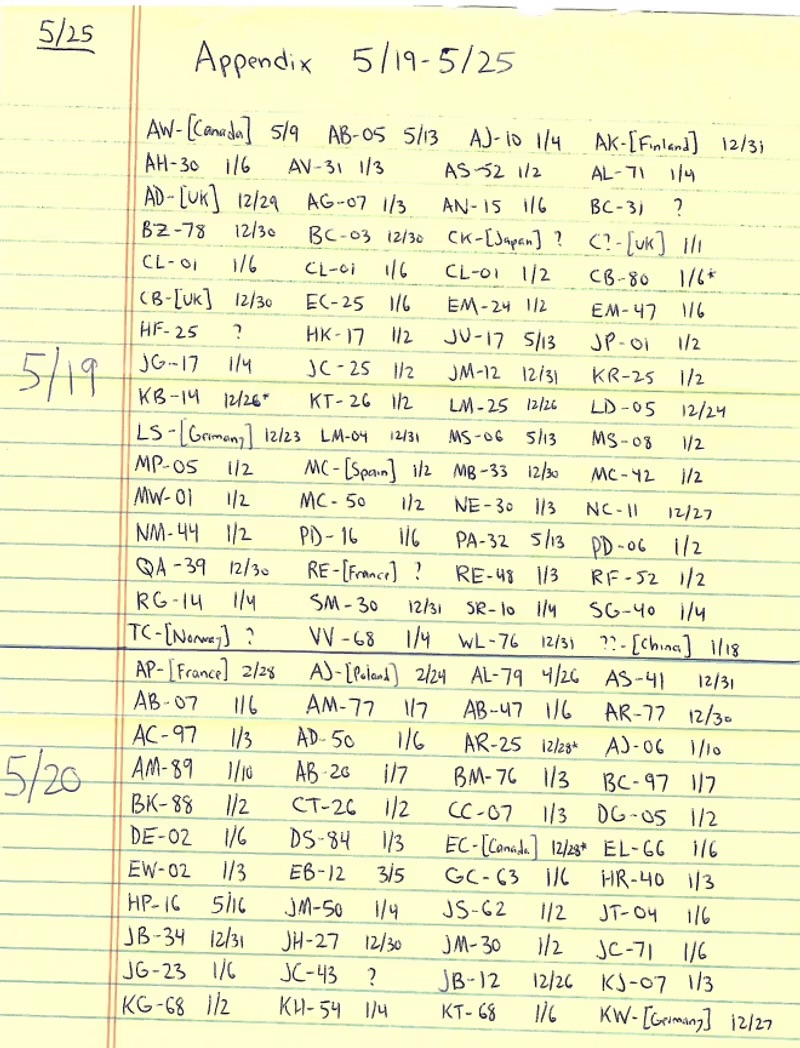 5/25
Appendix 5/19-5/25
AW-[Canada] 5/9 AB-05 5/13 AJ-10 1/4 AK-[Finland] 12/31
AH-30 1/6 AV-31 1/3 AS-52 1/2 AL-71 1/4
AD-[UK] 12/29 AG-07 1/3 AN-15 1/6 BC-31 ?
BZ-78 12/30 BC-03 12/30 CK-[Japan] ? C?-[UK] 1/1
CL-01 1/6 CL-01 1/6 CL-01 1/2 CB-80 1/6*
CB-[UK] 12/30 EC-25 1/6 EM-24 1/2 EM-47 1/6
HF-25 ? HK-17 1/2 JV-17 5/13 JP-01 1/2
5/19
JG-17 1/4 JC-25 1/2 JM-12 12/31 KR-25 1/2
KB-14 12/26* KT-26 1/2 LM-25 12/26 LD-05 12/24
LS-[Germany] 12/23 LM-04 12/31 MS-06 5/13 MS-08 1/2
MP-05 1/2 MC-[Spain] 1/2 MB-33 12/30 MC-42 1/2
MW-01 1/2 MC-50 1/2 NE-30 1/3 NC-11 12/27
NM-44 1/2 PD-16 1/6 PA-32 5/13 PD-06 1/2
QA-39 12/30 RE-[France] ? RE-48 1/3 RF-52 1/2
RG-14 1/4 SM-30 12/31 SR-10 1/4 SG-40 1/4
TC-[Norway] ? VV-68 1/4 WL-76 12/31 ??-[China] 1/18
AP-[France] 2/28 AJ-[Poland] 2/24 AL-79 4/26 AS-41 12/31
AB-07 1/6 AM-77 1/7 AB-47 1/6 AR-77 12/30
AC-97 1/3 AD-50 1/6 AR-25 12/28* AJ-06 1/10
5/20
AM-89 1/10 AB-20 1/7 BM-76 1/3 BC-97 1/7
BK-88 1/2 CT-26 1/2 CC-07 1/3 DG-05 1/2
DE-02 1/6 DS-84 1/3 EC-[Canada] 12/28* EL-66 1/6
EW-02 1/3 EB-12 3/5 GC-63 1/6 HR-40 1/3
HP-16 5/16 JM-50 1/4 JS-62 1/2 JT-04 1/6
JB-34 12/31 JH-27 12/30 JM-30 1/2 JC-71 1/6
JG-23 1/6 JC-43 ? JB-12 12/26 KJ-07 1/3
KG-68 1/2 KH-54 1/4 KT-68 1/6 KW-[Germany] 12/27